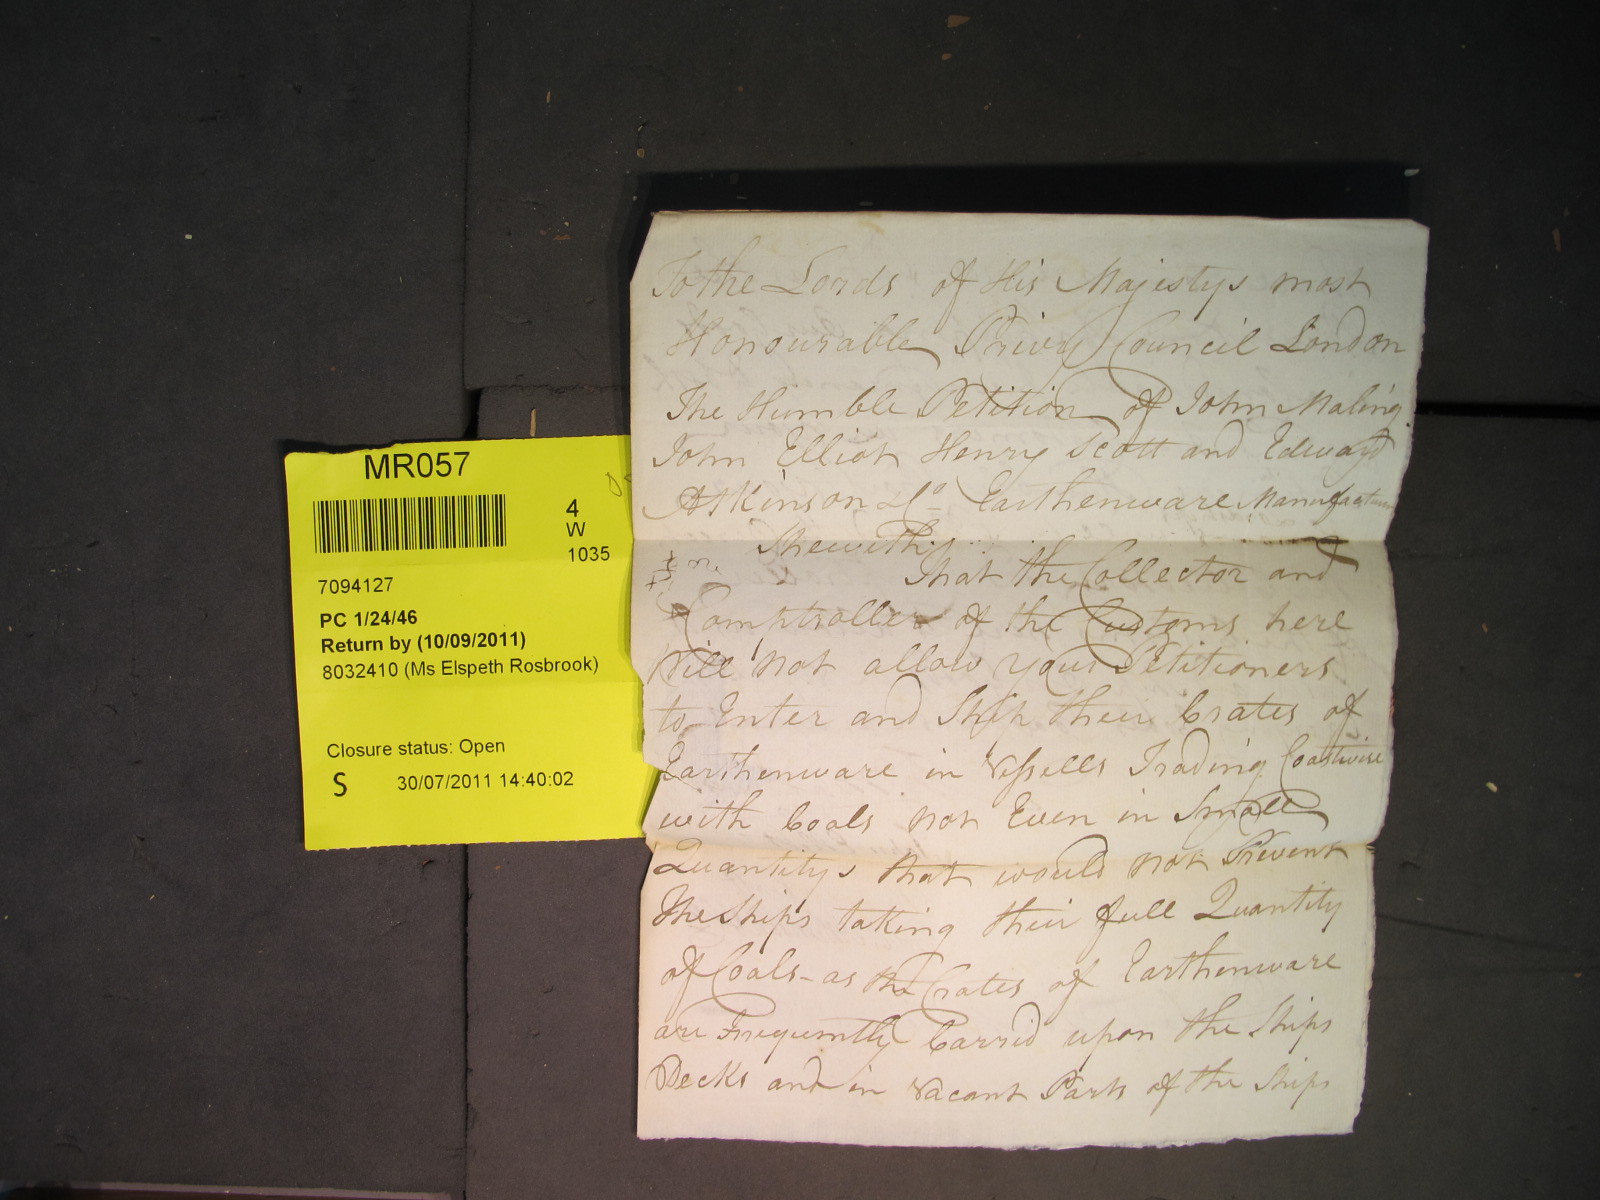 MR057
4
W
1035
7094127
PC 1/24/46
Return by (10/09/2011)
8032410 (Ms Elspeth Rosbrook)
Closure status: Open
S 30/07/2011 14:40:02
To the Lords of His Majestys most
Honourable Privy Council London
The Humble Petition of John Maling
John Elliot Henry Scott and Edward
Atkinson & Co Earthenware Manufacturers
Shewith
That the Collector and
Comptroller of the Customs here
Will not allow your Petitioners
to Enter and Ship their Crates of
Earthenware in Vessells Trading Coastwise
with Coals not Even in Small
Quantitys that would not Prevent
the Ships taking their full Quantity
of Coals - as the Crates of Earthenware
are Frequently Carrid upon the Ships
Decks and in Vacant Parts of the Ships